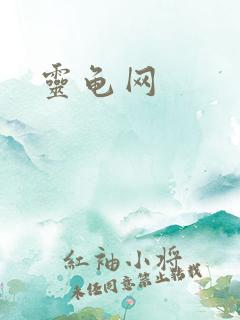 靈龟网
红袖小將
未经同意禁止转载